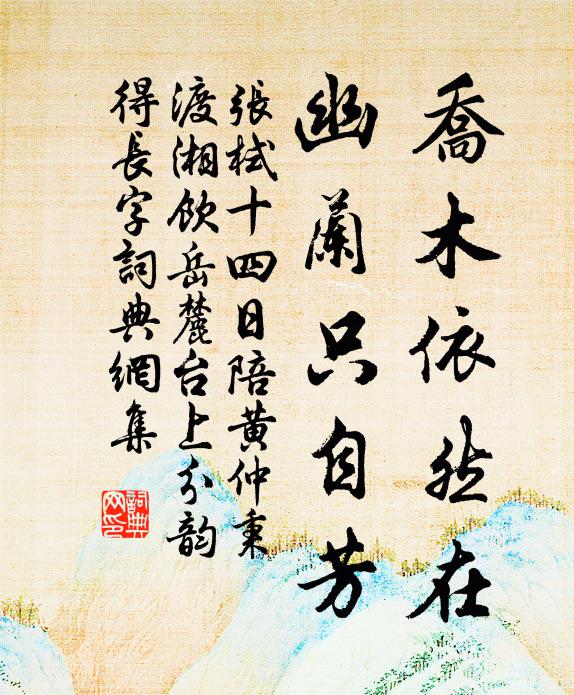 喬木依然在
幽蘭只自芳
張栻十四日陪黃仲秉
渡湘飲岳麓台上分韵
得長字詞典網集
詞典
网印